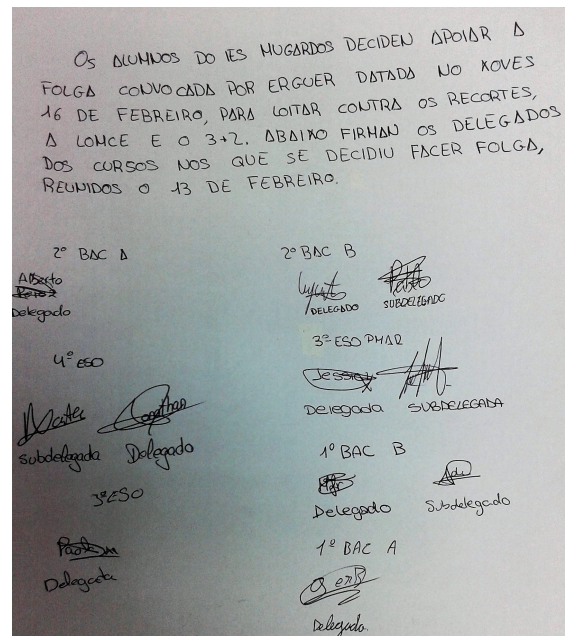 Os ALUMNOS DO IES MUGARDOS DECIDEN APOIAR A
FOLGA CONVOCADA POR ERGUER DATADA NO XOVES
16 DE FEBREIRO, PARA LOITAR CONTRA OS RECORTES,
A LOMCE E O 3+2. ABAIXO FIRMAN OS DELEGADOS
DOS CURSOS NOS QUE SE DECIDIU FACER FOLGA,
REUNIDOS O 13 DE FEBREIRO.
2º BAC A
Alberto
Delegado
2º BAC B
DELEGADO SUBDELEGADO
4º ESO
Jonathan
Subdelegada Delegado
3º ESO PMAR
Jessica
Delegada SUBDELEGADA
3º ESO
Paola
Delegada
1º BAC B
Delegado Subdelegado
1º BAC A
Delegado.